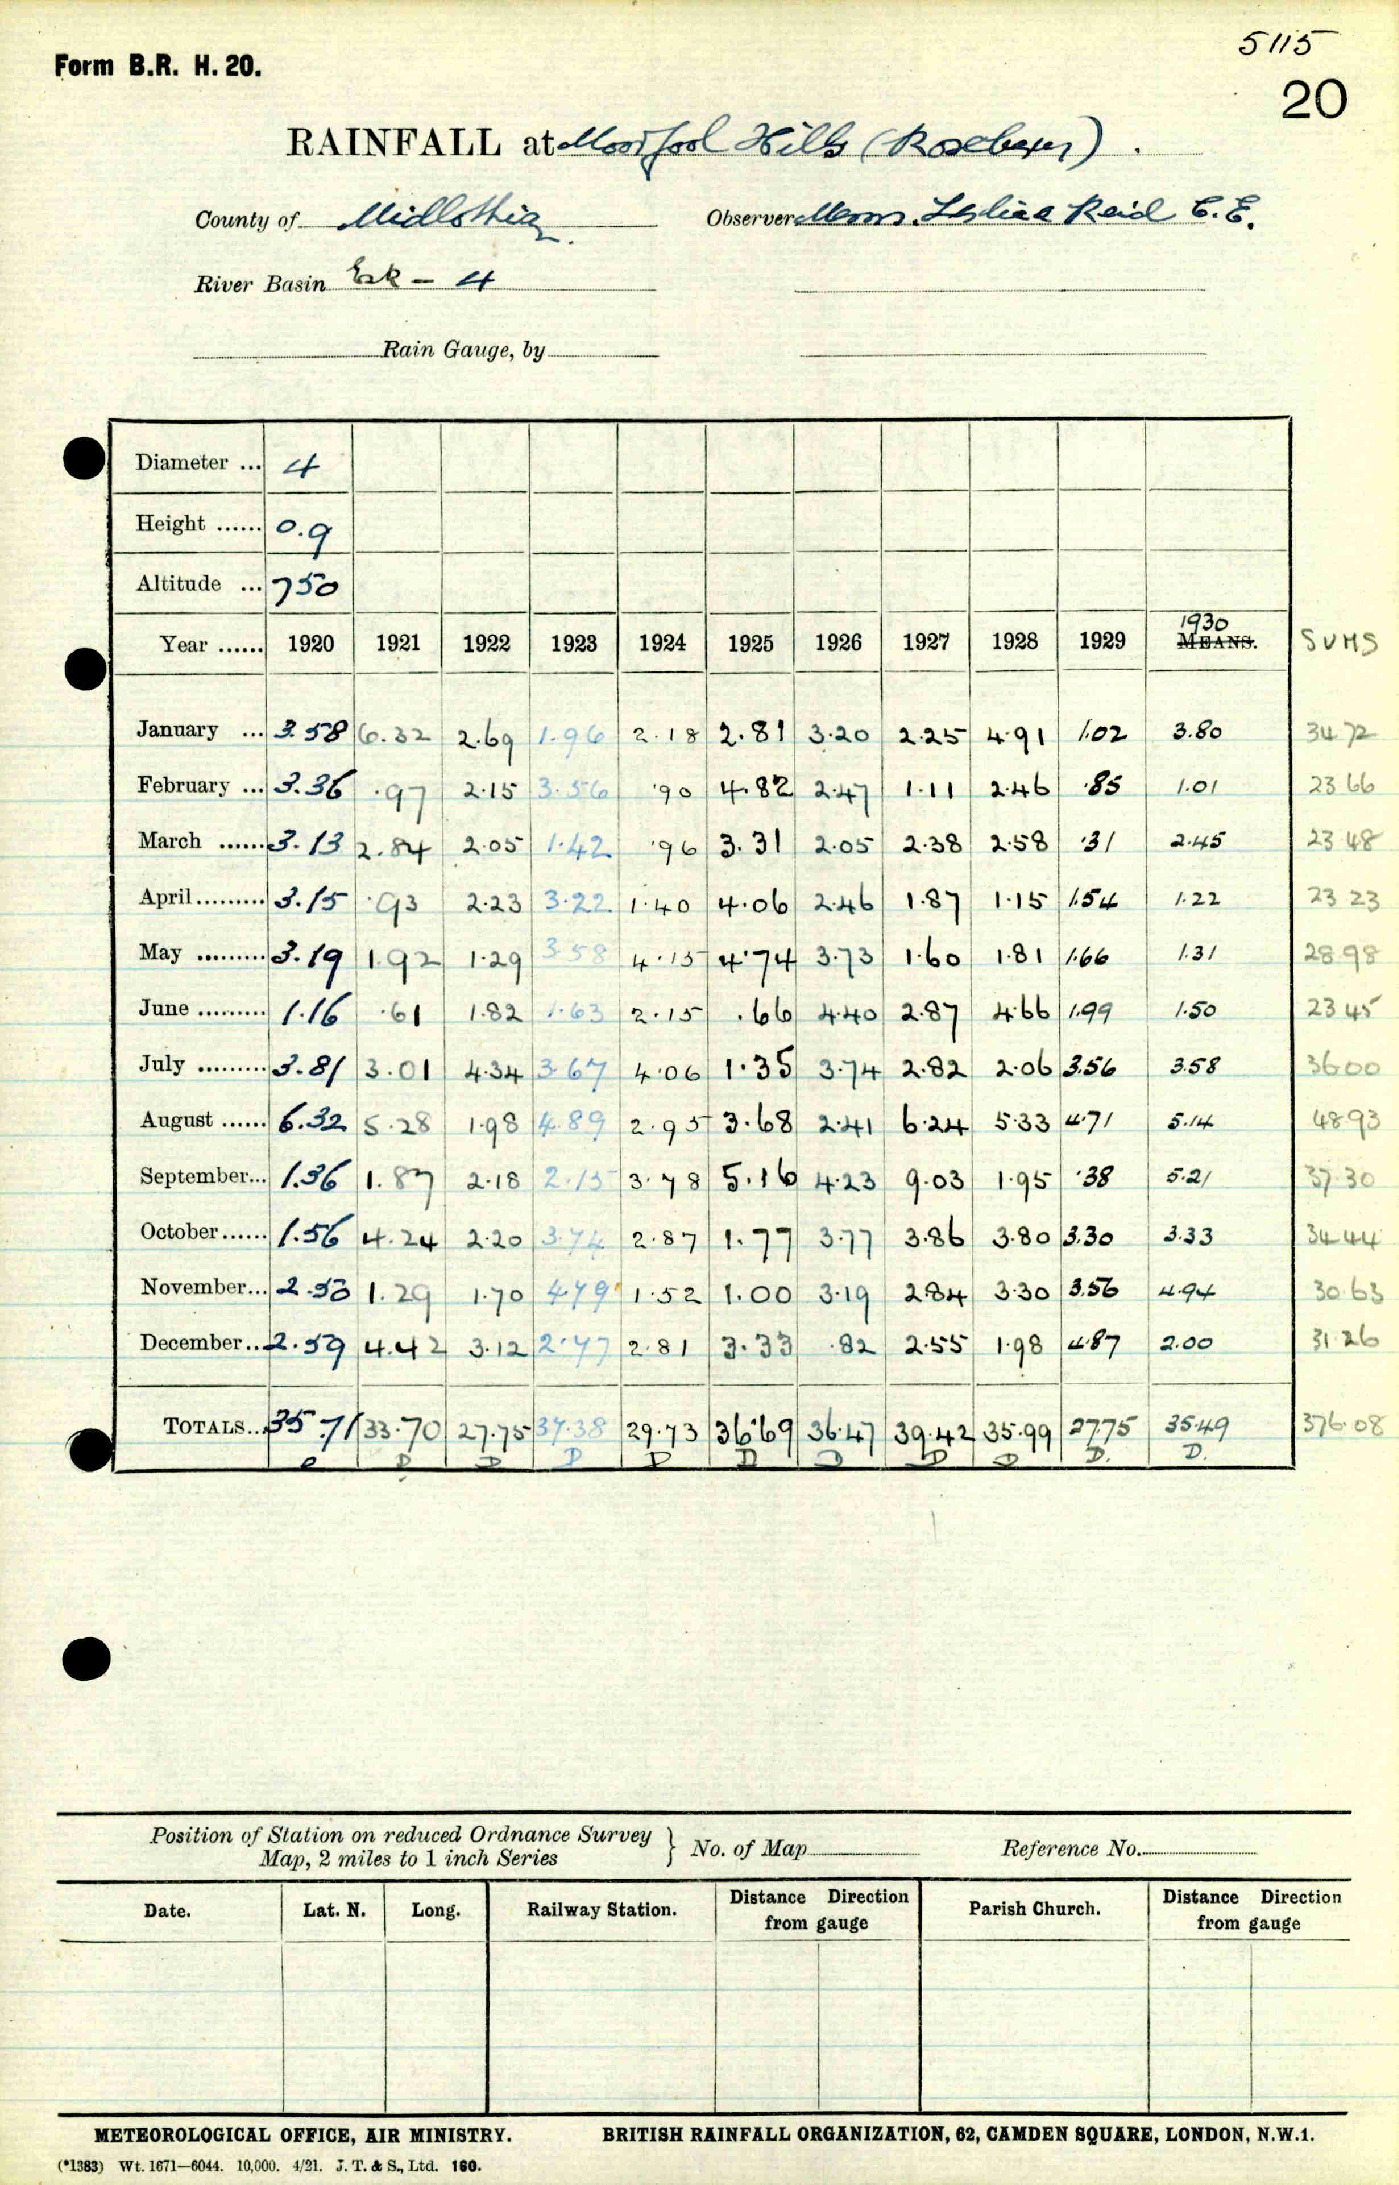 5115
Form B.R. H. 20.
20
RAINFALL at Moorfool Hills (Rosebery).
County of Midlothian. Observer Messrs. Leslie & Reid C.E.
River Basin Esk – 4
Rain Gauge, by
Diameter ... 4
Height ...... 0.9
Altitude ... 750
Year ...... 1920 1921 1922 1923 1924 1925 1926 1927 1928 1929 1930 MEANS. SUMS
January ... 3.58 6.32 2.69 1.96 2.18 2.81 3.20 2.25 4.91 1.02 3.80 34 72
February ... 3.36 .97 2.15 3.56 .90 4.82 2.47 1.11 2.46 .85 1.01 23 66
March ...... 3.13 2.84 2.05 1.42 .96 3.31 2.05 2.38 2.58 .31 2.45 23 48
April......... 3.15 .93 2.23 3.22 1.40 4.06 2.46 1.87 1.15 1.54 1.22 23 23
May ......... 3.19 1.92 1.29 3.58 4.15 4.74 3.73 1.60 1.81 1.66 1.31 28.98
June ......... 1.16 .61 1.82 1.63 2.15 .66 4.40 2.87 4.66 1.99 1.50 23 45
July ......... 3.81 3.01 4.34 3.67 4.06 1.35 3.74 2.82 2.06 3.56 3.58 36 00
August ...... 6.32 5.28 1.98 4.89 2.95 3.68 2.41 6.24 5.33 4.71 5.14 48 93
September... 1.36 1.87 2.18 2.15 3.78 5.16 4.23 9.03 1.95 .38 5.21 37.30
October...... 1.56 4.24 2.20 3.74 2.87 1.77 3.77 3.86 3.80 3.30 3.33 34 44
November... 2.50 1.29 1.70 4.79 1.52 1.00 3.19 2.84 3.30 3.56 4.94 30 63
December... 2.59 4.42 3.12 2.47 2.81 3.33 .82 2.55 1.98 4.87 2.00 31 26
TOTALS... 35.71 33.70 27.75 37.38 29.73 36.69 36.47 39.42 35.99 27.75 35.49 376.08
D D D D D D D D D. D.
Position of Station on reduced Ordnance Survey
Map, 2 miles to 1 inch Series } No. of Map Reference No.
Date. Lat. N. Long. Railway Station. Distance Direction from gauge Parish Church. Distance Direction from gauge
METEOROLOGICAL OFFICE, AIR MINISTRY. BRITISH RAINFALL ORGANIZATION, 62, CAMDEN SQUARE, LONDON, N.W.1.
(*1383) Wt. 1671—6044. 10,000. 4/21. J. T. & S., Ltd. 160.